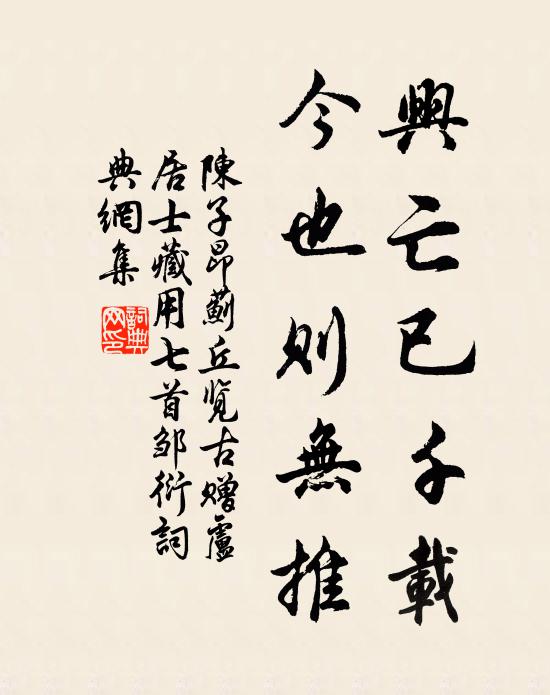 興亡已千載
今也則無推
陳子昂薊丘覽古赠盧
居士藏用七首邹衍詞
典網集
詞典网印